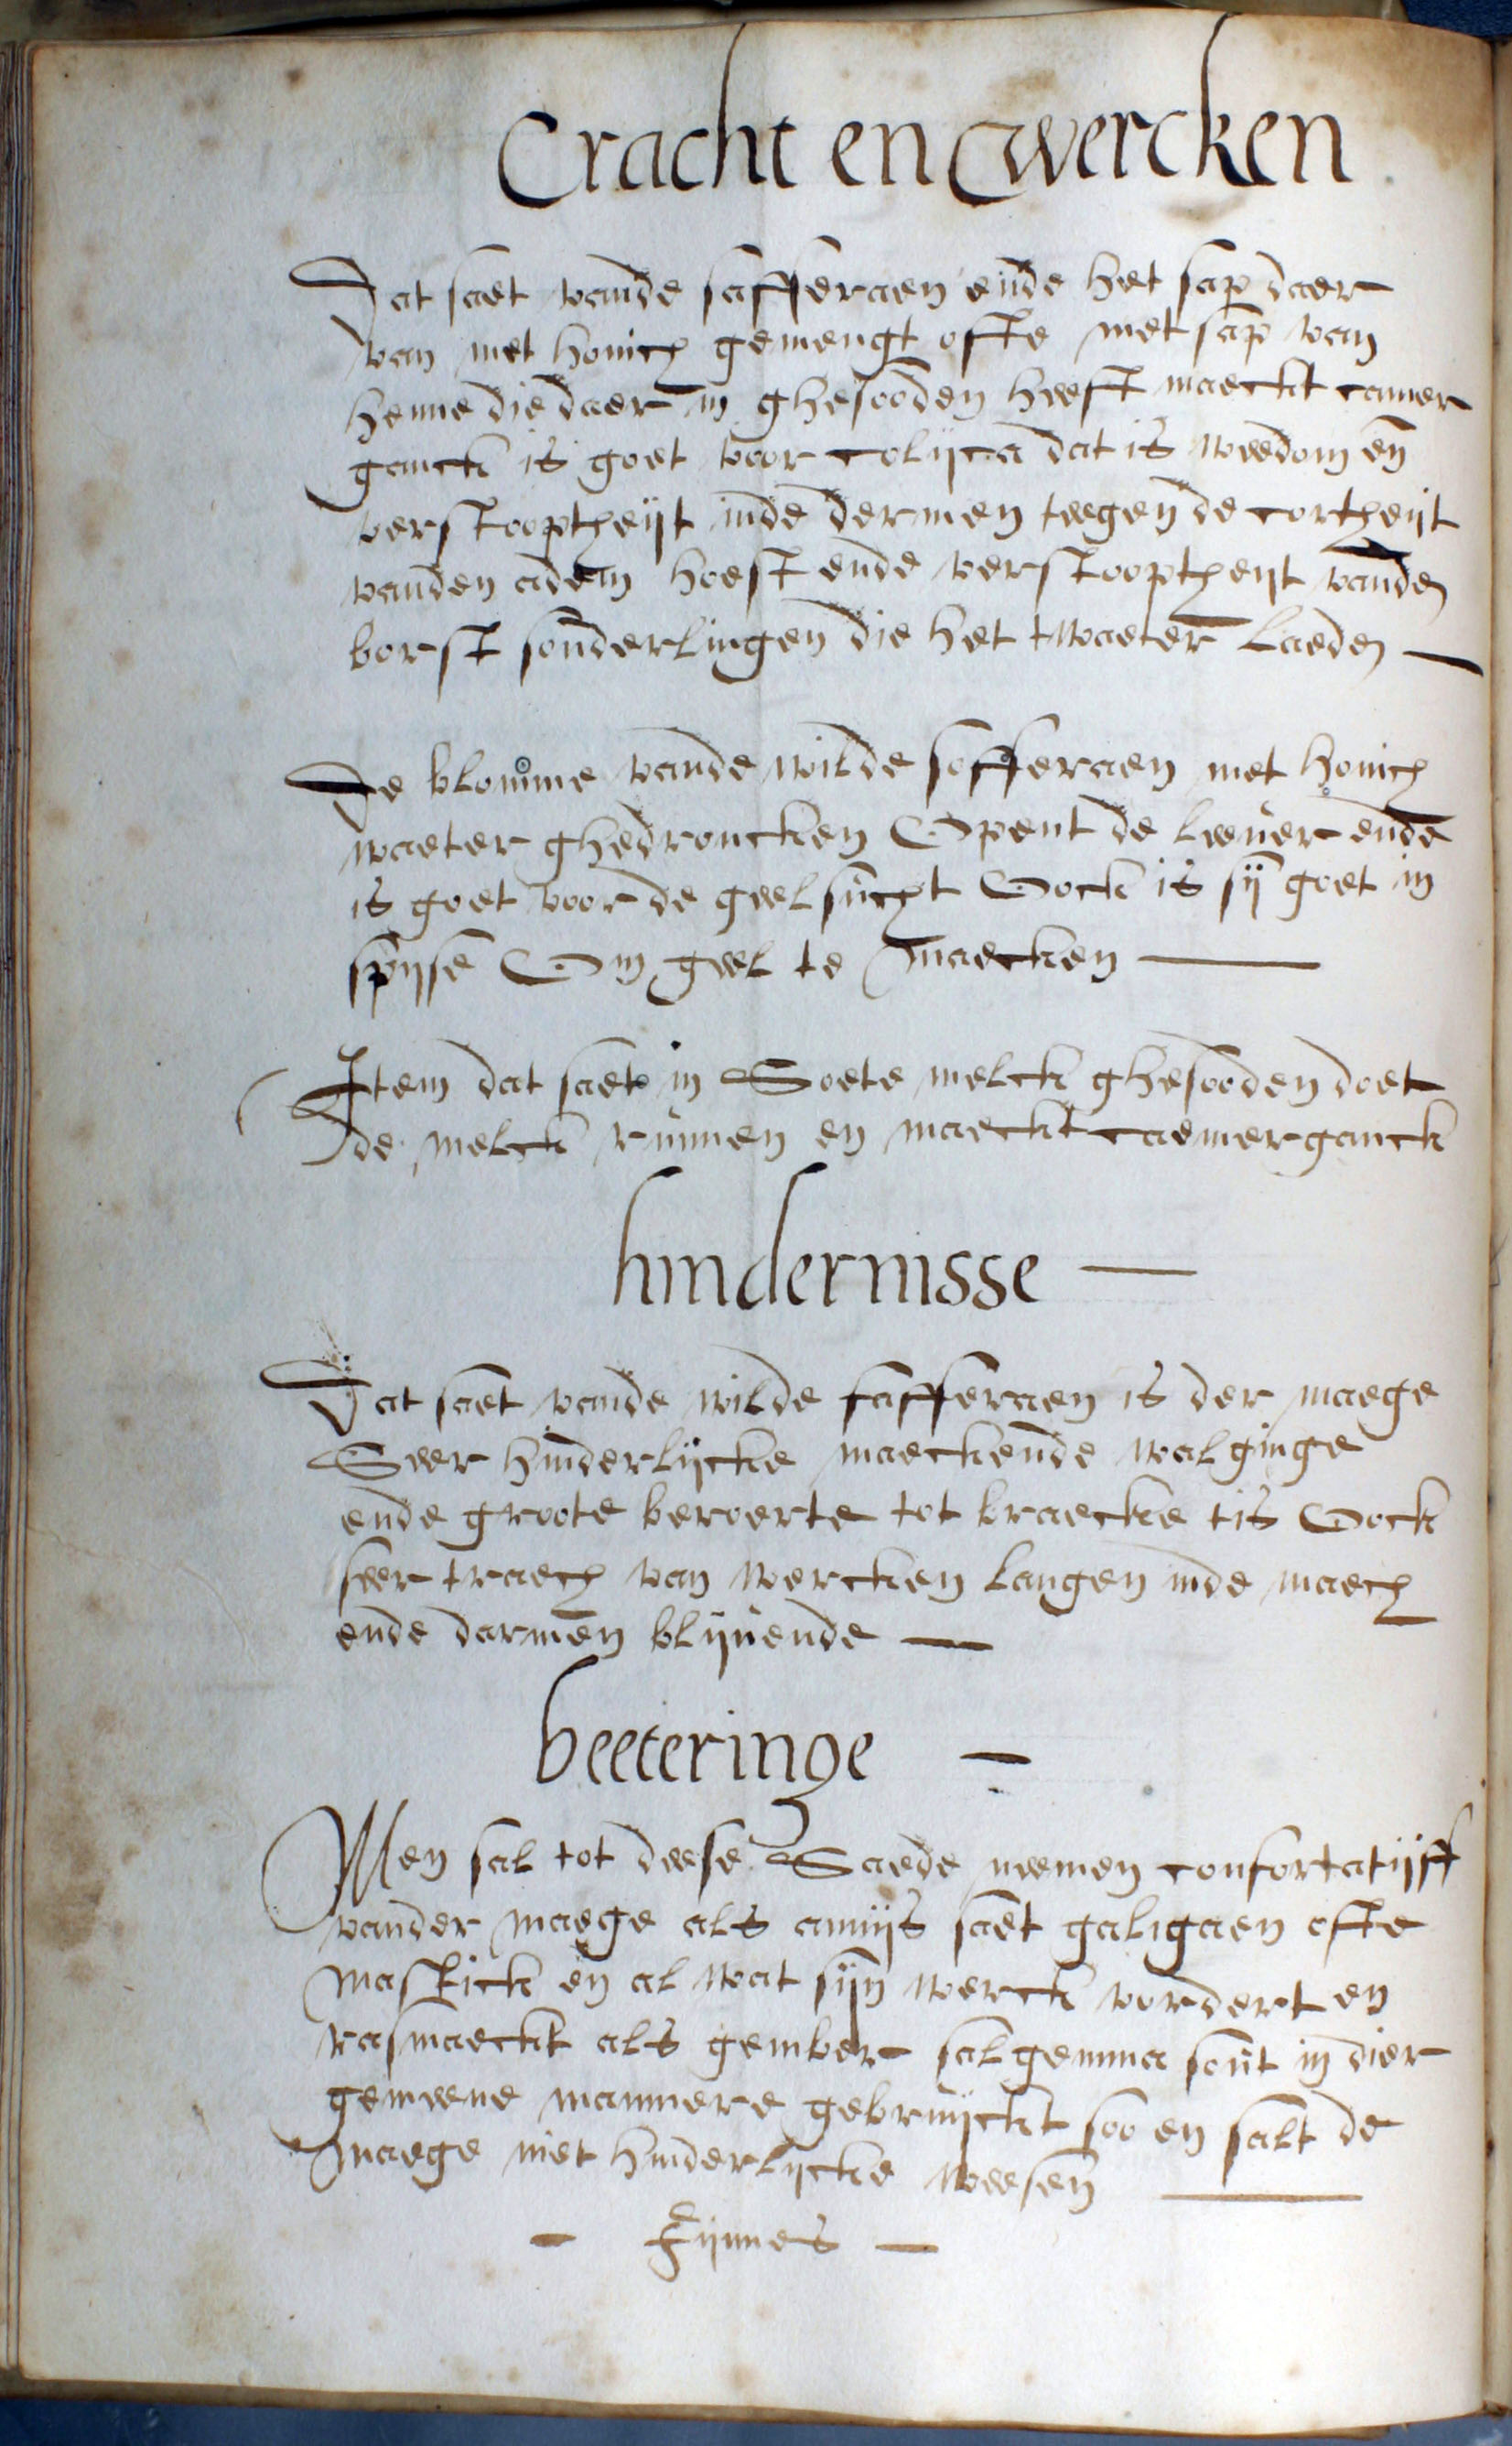 Cracht en wercken
Dat saet vande safferaen ende het sap daer
van met honich gemengt ofte met sap van
henne die daer in ghesooden heeft maeckt camer
ganck is goet voor colijca dat is weedom en
verstooptheijt inde dermen teegen de cortheijt
vanden adem hoest ende verstooptheijt vanden
borst sonderlingen die het twaeter laeden
De blomme vande wilde safferaen met honich
waeter ghedroncken Opent de leever ende
is goet voor de geelsucht Oock is sij goet in
spijse Om geel te maecken
Item dat saet in Soete melck ghesooden doet
de melck runnen en maeckt caemerganck
hindernisse
Dat saet vande wilde safferaen is der maege
Seer hinderlijcke maeckende walginge
ende groote beroerte tot braecke tis Oock
seer traech van wercken langen inde maech
ende darmen blijvende
beeteringe
Men sal tot deese Saede neemen confortatijff
vander maege als annijs saet galigaen ofte
mastick en al wat sijn werck vordert en
rasmaeckt als gember salgemma sout in dier
gemeene manniere gebruijckt soo en salt de
maege niet hinderlijcke weesen
Fijnnes